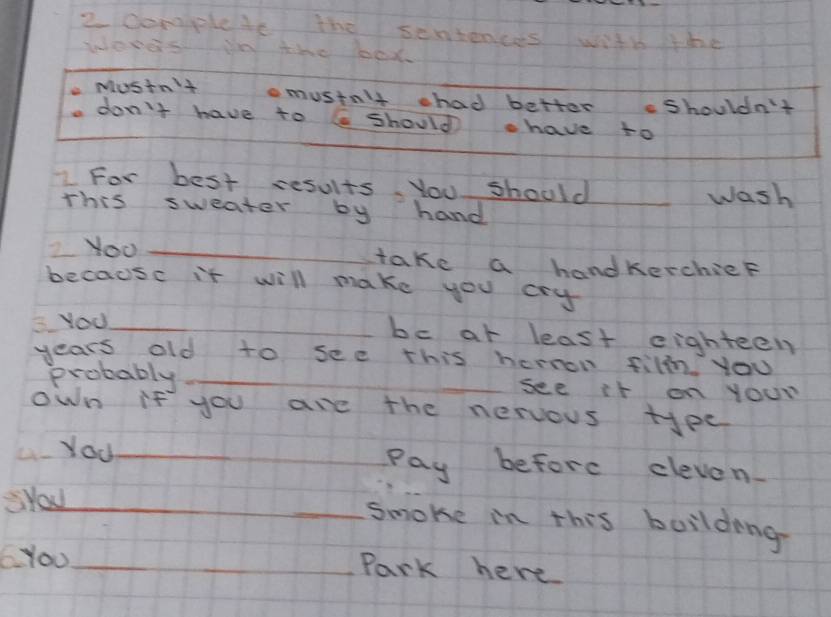 2 complete the sentences with the
words in the box.
• Mustn't • mustn't • had better • shouldn't
• don't have to • should • have to
1 For best results. You should wash
this sweater by hand
2 You take a handkerchief
because it will make you cry
3. You be at least eighteen
years old to see this horror film. You
probably see it on your
own if you are the nervous type
4- You Pay before eleven-
5 You smoke in this building
6 You Park here